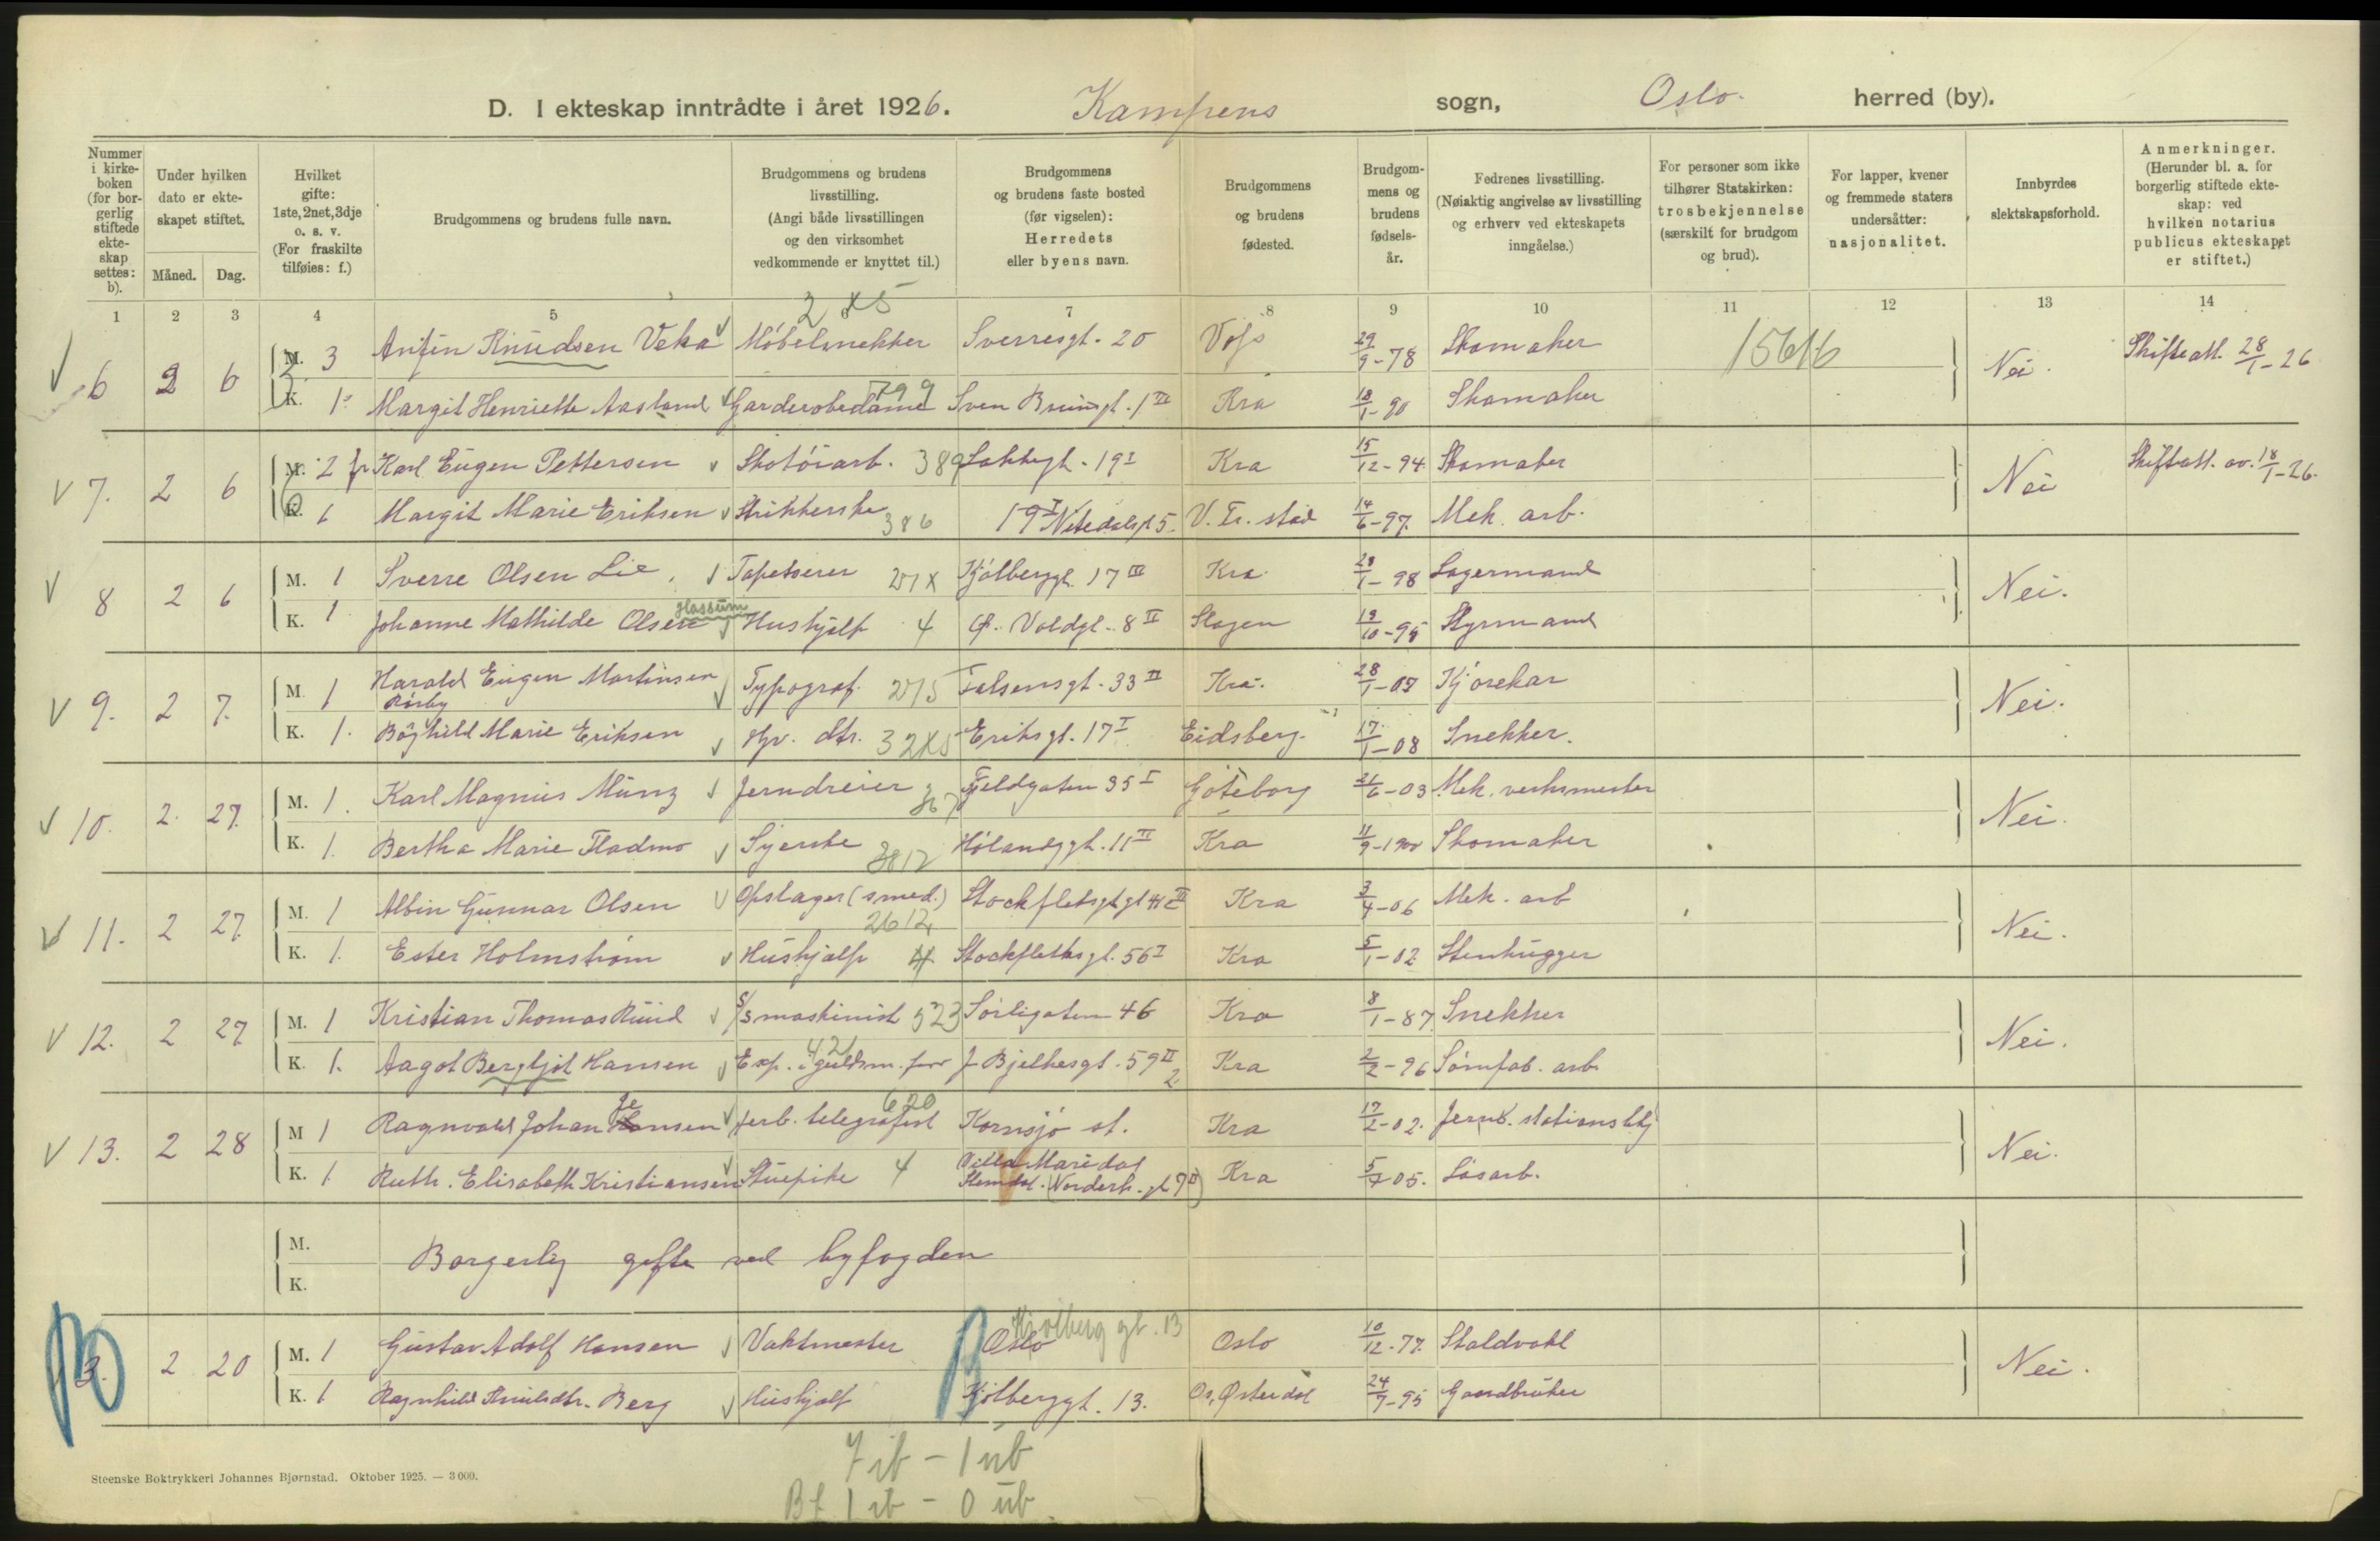 D. I ekteskap inntrådte i året 1926. Kampens sogn, Oslo. herred (by).
Nummer i kirke-boken (for bor-gerlig stiftede ekte-skap settes: b).
Under hvilken dato er ekte-skapet stiftet.
Måned. Dag.
Hvilket gifte: 1ste, 2net, 3dje o. s. v. (For fraskilte tilføies: f.)
Brudgommens og brudens fulle navn.
Brudgommens og brudens livsstilling. (Angi både livsstillingen og den virksomhet vedkommende er knyttet til.)
Brudgommens og brudens faste bosted (før vigselen): Herredets eller byens navn.
Brudgommens og brudens fødested.
Brudgom-mens og brudens fødsels-år.
Fedrenes livsstilling. (Nøiaktig angivelse av livsstilling og erhverv ved ekteskapets inngåelse.)
For personer som ikke tilhører Statskirken: trosbekjennelse (særskilt for brudgom og brud).
For lapper, kvener og fremmede staters undersåtter: nasjonalitet.
Innbyrdes slektskapsforhold.
Anmerkninger. (Herunder bl. a. for borgerlig stiftede ekte-skap: ved hvilken notarius publicus ekteskapet er stiftet.)
1 2 3 4 5 6 7 8 9 10 11 12 13 14
2 X5
6 2 6 M. 3 Anfin Knudsen Veka Møbelsnekker Sverresgt. 20 Voss 29/9-78 Skomaker 15616 Nei. Skifteatt. 28/1-26
K. 1. Margit Henriette Aasland Garderobedame 799 Sven Bruunsgt. 1 III Kra 18/1-90 Skomaker
7. 2 6 M. 2 fr Karl Eugen Pettersen Skotøiarb. 389 Lakkegt. 19 I Kra 15/12-94. Skomaker Nei Skifteatt. av. 18/1-26.
K. 1 Margit Marie Eriksen Strikkerske 386 19 I Nitedalsgt 5. V. Fr. stad 14/6-97. Mek. arb.
8 2 6 M. 1 Sverre Olsen Lie. Tapetserer 271X Kjølberggt. 17 III Kra. 28/1-98 Lagermand Nei.
Hassum
K. 1 Johanne Mathilde Olsen Hushjælp 4 Voldgt. 8 II Slagen 19/10-95 Styrmand
9. 2 7. M. 1 Harald Eugen Martinsen Rørby Typograf. 275 Falsensgt. 33 II Kra. 28/1-07 Kjørekar Nei.
K. 1. Bøghild Marie Eriksen Hv. dtr. 32X5 Eriksgt. 17 I Eidsberg. 17/1-08 Snekker.
10. 2. 27. M. 1. Karl Magnus Münz Jerndreier 367 Fjeldgaten 35 I Gøteborg 21/6-03 Mek. verksmester Nei.
K. 1. Bertha Marie Fladmo Syerske 3812 Hølandsgt. 11 II Kra 11/9-1900 Skomaker
11. 2 27. M. 1 Albin Gunnar Olsen Opslager (smed.) 2612 Stockflets gt 41 c III Kra 3/4-06 Mek. arb Nei.
K. 1. Ester Holmstrøm Hushjælp 4 Stockflethsgt. 56 I Kra 5/1-02 Stenhugger
12. 2 27 M. 1 Kristian Thomas Ruud S/S maskinist 523 Sørligaten 46 Kra 8/1-87 Snekker Nei.
K. 1. Aagot Bergljot Hansen Exp. i guldsm. forr 421 J. Bjelkesgt. 59 II 2 Kra 2/2-96 Sømfab. arb.
13. 2 28 M 1 Ragnvald Johan Jensen Jerb. telegrafist 620 Kornsjø st. Kra 17/2-02. Jernb. stationsbtj Nei.
K. 1 Ruth. Elisabeth Kristiansen Stuepike 4 Villa Maridal Slemdal. (Norderh. gt 9 II) Kra 5/7 05. Løsarb.
M.
Borgerlig gifte ved byfogden
K.
3. 2 20 M. 1 Gustav Adolf Hansen Vaktmester Oslo Kjølberg gt. 13 Oslo 10/12-77. Staldvakt Nei.
K. 1 Ragnhild Knutsdtr. Berg Hushjælp Kjølberggt. 13. Os, Østerdal 24/9-95 Gaardbruker
7 ib - 1 ub
Bf 1 ib - 0 ub.
Steenske Boktrykkeri Johannes Bjørnstad. Oktober 1925. — 3000.